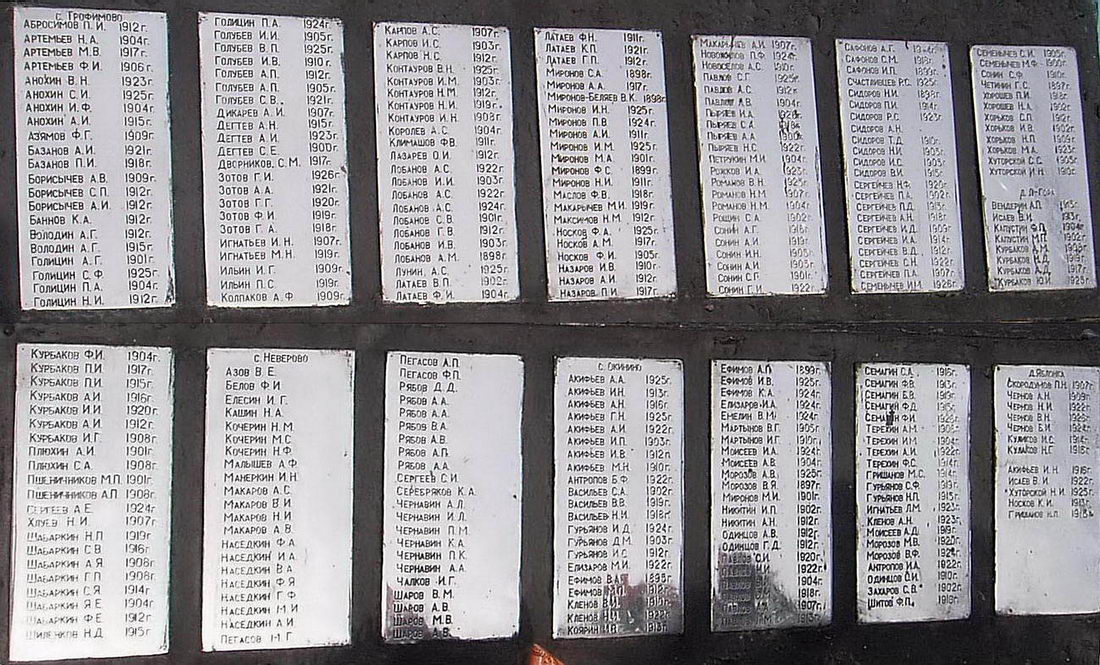 с. Трофимово
Абросимов П.И. 1912г.
Артемьев Н.А. 1904г.
Артемьев М.В. 1917г.
Артемьев Ф.И. 1906г.
Анохин В.Н. 1923г.
Анохин С.И. 1925г.
Анохин И.Ф. 1904г.
Анохин А.И. 1915г.
Азямов Ф.Г. 1909г.
Базанов А.И. 1921г.
Базанов П.И. 1918г.
Борисычев А.В. 1909г.
Борисычев С.П. 1912г.
Борисычев А.И. 1912г.
Баннов К.А. 1912г.
Володин А.Г. 1912г.
Володин А.Г. 1915г.
Голицин А.Г. 1901г.
Голицин С.Ф. 1925г.
Голицин П.А. 1904г.
Голицин Н.И. 1912г.
Голицин П.А. 1924г.
Голубев И.И. 1905г.
Голубев В.П. 1925г.
Голубев И.В. 1910г.
Голубев А.П. 1912г.
Голубев А.П. 1905г.
Голубев С.В. 1921г.
Дикарев А.И. 1907г.
Дегтев А.Н. 1915г.
Дегтев А.И. 1923г.
Дегтев С.Е. 1900г.
Дворников, С.М. 1917г.
Зотов Г.И. 1926г.
Зотов А.А. 1921г.
Зотов Г.Г. 1920г.
Зотов Ф.И. 1919г.
Зотов Г.А. 1918г.
Игнатьев И.Н. 1907г.
Игнатьев М.Н. 1919г.
Ильин И.Г. 1909г.
Ильин П.С. 1919г.
Колпаков А.Ф 1909г.
Карпов А.С. 1907г.
Карпов И.С. 1903г.
Карпов Н.С. 1912г.
Контауров В.Н. 1925г.
Контауров И.М. 1903г.
Контауров Н.М. 1912г.
Контауров Н.И. 1919г.
Контауров И.Н. 1908г.
Королев А.С. 1904г.
Климашов Ф.В. 1911г.
Лазарев О.И. 1912г.
Лобанов А.С. 1922г.
Лобанов И.И. 1903г.
Лобанов А.С. 1922г.
Лобанов А.С. 1924г.
Лобанов С.В. 1901г.
Лобанов Г.В. 1912г.
Лобанов И.В. 1903г.
Лобанов А.М. 1898г.
Лунин А.С. 1925г.
Латаев В.П. 1902г.
Латаев Ф.И. 1904г.
Латаев Ф.Н. 1911г.
Латаев К.П. 1921г.
Латаев Г.П. 1912г.
Миронов С.А. 1898г.
Миронов А.А. 1917г.
Миронов-Беляев В.К. 1898г.
Миронов И.Н. 1925г.
Миронов П.В. 1924г.
Миронов А.И. 1911г.
Миронов И.М. 1925г.
Миронов М.А. 1901г.
Миронов Ф.С. 1899г.
Миронов Н.И. 1911г.
Маслов Ф.В. 1918г.
Макарычев М.И. 1919г.
Максимов Н.М. 1912г.
Носков Ф.А. 1925г.
Носков А.М. 1917г.
Носков Ф.И. 1905г.
Назаров И.В. 1910г.
Назаров А.И. 1912г.
Назаров П.И. 1917г.
А.И. 1907г.
Новожилов П.Ф. 1924г.
Новоселов А.С.
Павлов С.Г. 1925г.
Павлов А.С. 1912г.
Павлов А.В. 1904г.
Пыряев И.А.
Пыряев С.А.
Пыряев А.А.
Пыряев Н.С. 1922г.
Петрукин М.И. 1904г.
Рожков И.А. 1923г.
Романов В.Н.
Романов Н.М. 1907г.
Романов Н.М. 1904г.
Рощин С.А. 1902г.
Сонин А.Г.
Сонин А.И. 1919г.
Сонин И.Н.
Сонин А.И.
Сонин С.Г. 1901г.
Сонин Г.И. 1922г.
Сафонов А.Г.
Сафонов С.М. 1918г.
Сафонов И.П. 1899г.
Счастливцев Р.С. 1925г.
Сидоров Н.И. 1898г.
Сидоров П.И. 1914г.
Сидоров Р.С. 1923г.
Сидоров А.Н.
Сидоров Т.Д.
Сидоров Н.И. 1903г.
Сидоров И.С. 1903г.
Сидоров В.И. 1915г.
Сергейчев Н.Ф. 1920г.
Сергейчев П.А. 1902г.
Сергейчев П.Д. 1915г.
Сергейчев А.Н. 1918г.
Сергейчев И.Д. 1909г.
Сергейчев И.А. 1914г.
Сергейчев В.Д. 1912г.
Сергейчев С.Н. 1922г.
Сергейчев П.А. 1907г.
Семенычев И.М. 1926г.
Семенычев С.И. 1905г.
Семенычев М.Ф. 1900г.
Сонин С.Ф. 1910г.
Четинин Г.С. 1897г.
Хорошев П.И. 1918г.
Хорошев Н.А. 1902г.
Хорьков С.П. 1912г.
Хорьков И.В. 1902г.
Хорьков Н.П. 1909г.
Хорьков М.А. 1923г.
Хуторской С.С. 1905г.
Хуторской И.Н. 1910г.
Вендерин А.П. 1913г.
Исаев В.И.
Капустин Ф.П. 1904г.
Капустин М.П. 1902г.
Курбаков А.М.
Курбаков Н.Д. 1919г.
Курбаков А.Д. 1917г.
Курбаков Ю.И. 1925г.
Курбаков Ф.И. 1904г.
Курбаков П.И 1917г.
Курбаков П.И 1915г.
Курбаков А.И 1916г.
Курбаков И.И 1920г.
Курбаков А.И 1912г.
Курбаков И.Г. 1908г.
Плюхин А.И. 1901г.
Плюхин С.А. 1908г.
Пшеничников М.П. 1901г.
Пшеничников А.П 1908г.
Сергеев А.Е. 1924г.
Хлуев Н.И 1907г.
Шабаркин Н.П 1919г.
Шабаркин С.В 1916г.
Шабаркин А.Я 1908г.
Шабаркин Г.П 1908г.
Шабаркин С.Я 1914г.
Шабаркин Я.Е 1904г.
Шабаркин Ф.Е 1912г.
Шиленков Н.Д 1915г.
с. Неверово
Азов В.Е.
Белов Ф.И
Елесин И.Г
Кашин Н.А.
Кочерин Н.М
Кочерин М.С
Кочерин Н.Ф
Малышев А.Ф
Манеркин И.Н
Макаров А.С.
Макаров В.И
Макаров Н.И
Макаров А.В
Наседкин Ф.А
Наседкин И.А
Наседкин В.А
Наседкин Ф.Я
Наседкин Г.Ф
Наседкин М.И
Наседкин А.И
Пегасов М.Г
Пегасов А.П.
Пегасов Ф.П.
Рябов Д.Д.
Рябов А.А.
Рябов А.А.
Рябов В.А.
Рябов А.В.
Рябов А.П.
Рябов А.А.
Сергеев С.И.
Серебряков К.А.
Чернавин А.Л.
Чернавин И.Л.
Чернавин П.М.
Чернавин К.А.
Чернавин П.К.
Чернавин А.А.
Чалков И.Г.
Шаров В.М.
Шаров А.В.
Шаров М.В.
Шаров А.В.
с. Окинино
Акифьев А.А. 1925г.
Акифьев И.Н. 1913г.
Акифьев А.Н. 1916г.
Акифьев Г.Н. 1925г.
Акифьев А.И. 1922г.
Акифьев И.П. 1903г.
Акифьев И.В. 1912г.
Акифьев М.Н. 1910г.
Антропов Б.Ф 1922г.
Васильев С.А. 1902г.
Васильев В.В. 1919г.
Васильев Н.И. 1918г.
Гурьянов И.Д. 1924г.
Гурьянов Д.М. 1903г.
Гурьянов И.С 1912г.
Елизаров М.И. 1922г.
Ефимов В.А. 1893г.
Ефимов М.И. 1912г.
Кленов В.И. 1915г.
Кленов Н.И.
Коярин И.С. 1913г.
Ефимов А.П 1899г.
Ефимов И.В. 1925г.
Ефимов К.А. 1924г.
Елизаров И.А. 1924г.
Емелин В.М 1924г.
Мартынов В.Г. 1905г.
Мартынов И.Г. 1910г.
Моисеев И.А. 1924г.
Моисеев А.В. 1904г.
Морозов А.В. 1925г.
Морозов В.Я. 1897г.
Миронов М.И. 1901г.
Никитин И.П. 1902г.
Никитин А.Н. 1912г.
Одинцов А.В. 1912г.
Одинцов Г.Д. 1912г.
1920г.
1922г.
1904г.
1918г.
1907г.
1913г.
Семагин С.А. 1916г.
Семагин Ф.В. 1913г.
Семагин Б.В. 1919г.
Семагин Ф.Д. 1915г.
Семагин Ф.И. 1926г.
Терехин А.М.
Терехин И.М. 1904г.
Терехин А.И. 1922г.
Терехин Ф.С. 1914г.
Гришанов М.С. 1914г.
Гурьянов С.Ф. 1919г.
Гурьянов Н.П. 1913г.
Игнатьев Л.М. 1923г.
Кленов А.Н. 1923г.
Моисеев А.Д. 1919г.
Морозов М.В. 1920г.
Морозов В.Ф. 1924г.
Антропов И.А. 1922г.
Одинцов С.И. 1910г.
Захаров С.В. 1902г.
Шитов Ф.П. 1919г.
д. Яблонка
Скородумов П.Н. 1907г.
Чернов А.Н. 1909г.
Чернов Н.И. 1922г.
Чернов В.Н. 1926г.
Чернов Б.И. 1924г.
Куликов Н.С. 1914г.
Кулаков Н.Г. 1915г.
Акифьев И.Н. 1916г.
Исаев В.И. 1922г.
Хуторской Н.И. 1925г.
Носков К.И. 1913г.
Гришанов Н.П. 1913г.